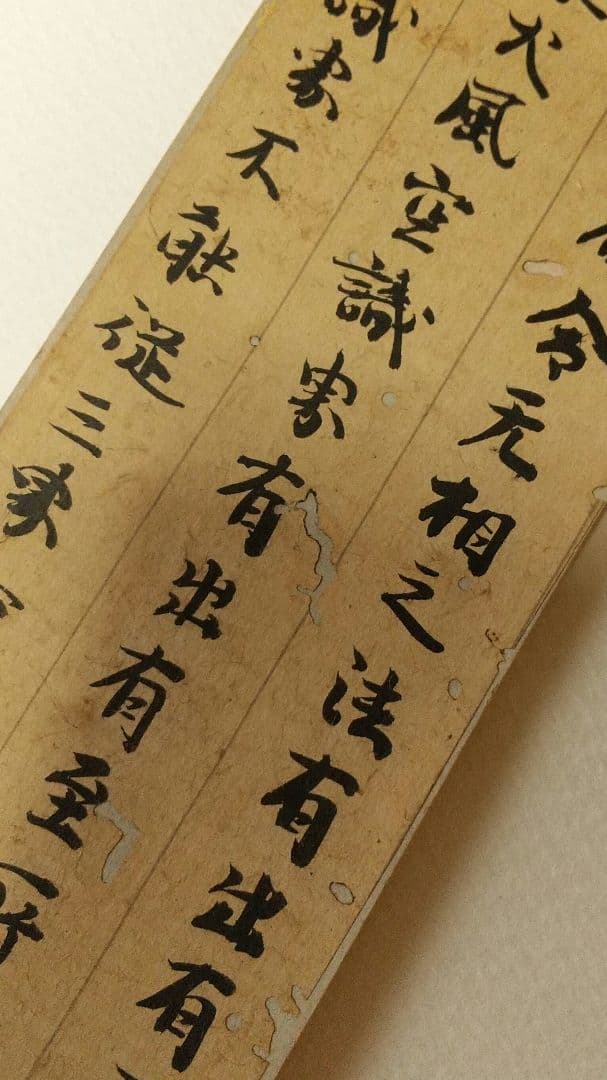 令无相之法有出有
火風空識界有出有至
識界不能從三界